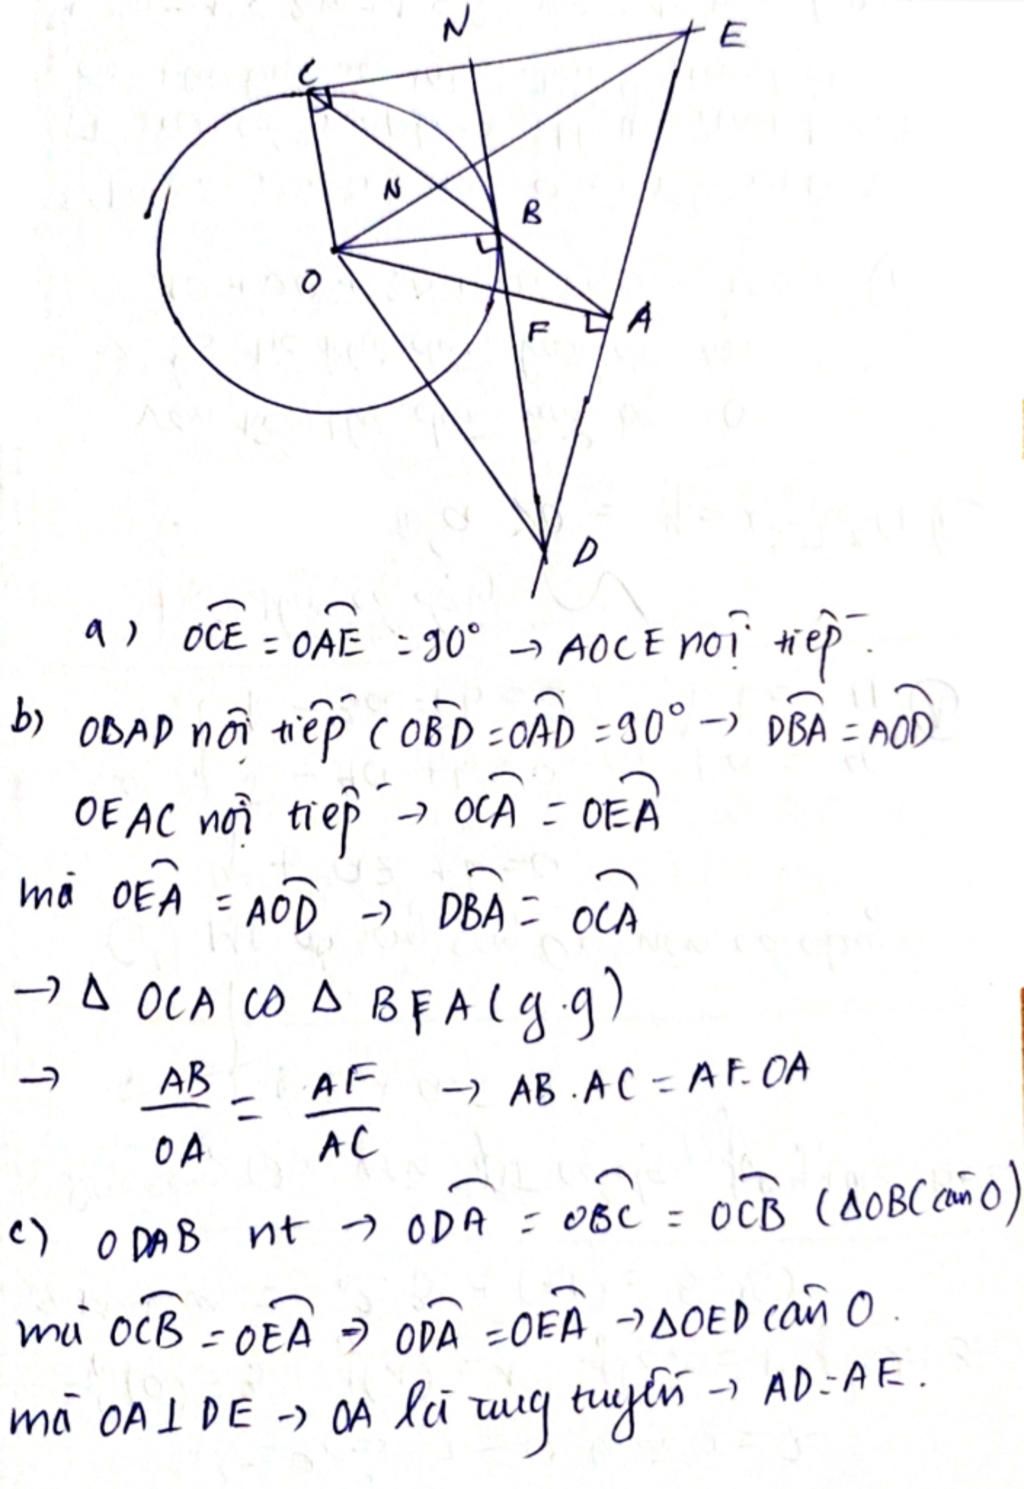 N
E
C
N
B
O
F
A
D
a) OCE = OAE = 90° → AOCE nội tiếp.
b) OBAD nội tiếp (OBD = OAD = 90° → DBA = AOD
OEAC nội tiếp → OCA = OEA
mà OEA = AOD → DBA = OCA
→ Δ OCA ∽ Δ BFA (g.g)
→ AB/OA = AF/AC → AB.AC = AF.OA
c) ODAB nt → ODA = OBC = OCB (ΔOBC cân O)
mà OCB = OEA → ODA = OEA → ΔOED cân O.
mà OA ⊥ DE → OA là tung tuyến → AD = AE.